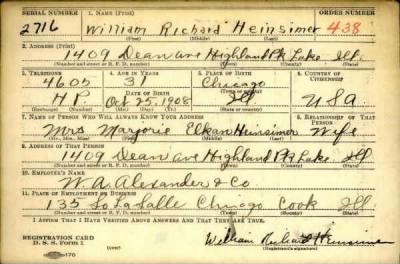 SERIAL NUMBER 1. NAME (Print) ORDER NUMBER
2716 William Richard Heinsimer 438
(First) (Middle) (Last)
2. ADDRESS (Print)
1409 Dean Ave Highland Pk Lake Ill.
(Number and street or R. F. D. number) (Town) (County) (State)
3. TELEPHONE 4. AGE IN YEARS 5. PLACE OF BIRTH 6. COUNTRY OF CITIZENSHIP
4605 31 Chicago
DATE OF BIRTH (Town or county)
H P Oct 25, 1908 Ill USA
(Exchange) (Number) (Mo.) (Day) (Yr.) (State or country)
7. NAME OF PERSON WHO WILL ALWAYS KNOW YOUR ADDRESS 8. RELATIONSHIP OF THAT PERSON
Mrs Marjorie Elkan Heinsimer Wife
(Mr., Mrs., Miss) (First) (Middle) (Last)
9. ADDRESS OF THAT PERSON
1409 Dean Ave Highland Pk Lake Ill
(Number and street or R. F. D. number) (Town) (County) (State)
10. EMPLOYER'S NAME
W. A. Alexander & Co.
11. PLACE OF EMPLOYMENT OR BUSINESS
135 So La Salle Chicago Cook Ill
(Number and street or R. F. D. number) (Town) (County) (State)
I AFFIRM THAT I HAVE VERIFIED ABOVE ANSWERS AND THAT THEY ARE TRUE.
REGISTRATION CARD
D. S. S. Form 1 William Richard Heinsimer
(Registrant's signature)